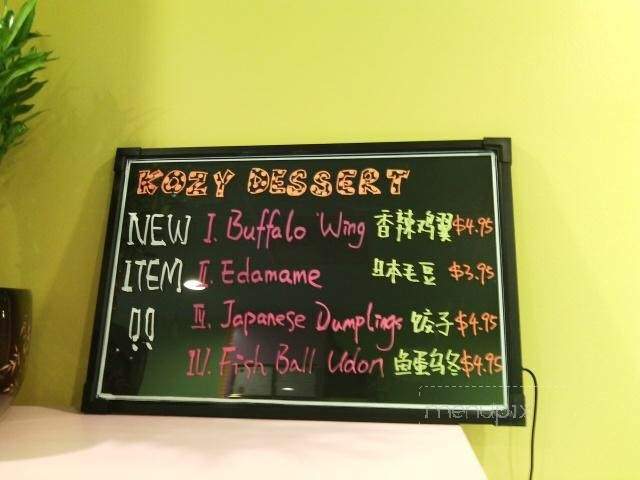 KOZY DESSERT
NEW I. Buffalo Wing 香辣鸡翼 $4.95
ITEM II. Edamame 日本毛豆 $3.95
!! III. Japanese Dumplings 饺子 $4.95
IV. Fish Ball Udon 鱼蛋乌冬 $4.95
menupix